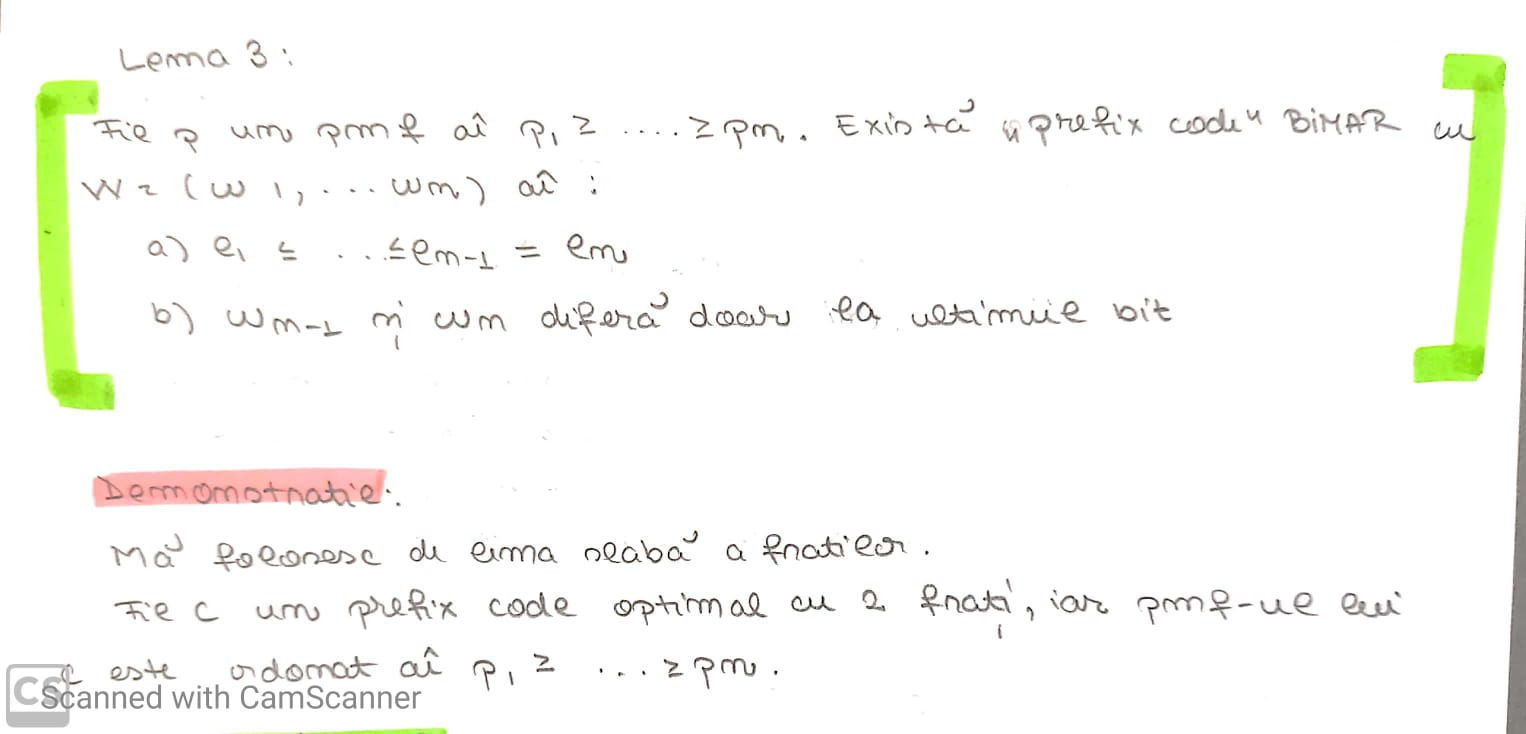 Lema 3:
Fie p un pmf aî p1 ≥ .... ≥ pn. Există "prefix code" BINAR cu
W = (w1, ... wn) aî :
a) l1 ≤ ... ≤ ln-1 = ln
b) wn-1 și wn diferă doar la ultimul bit
Demonstratie:
Mă folosesc de lema slabă a fratilor.
Fie C un prefix code optimal cu 2 frați, iar pmf-ul lui
este ordonat aî p1 ≥ ... ≥ pn.
CS Scanned with CamScanner